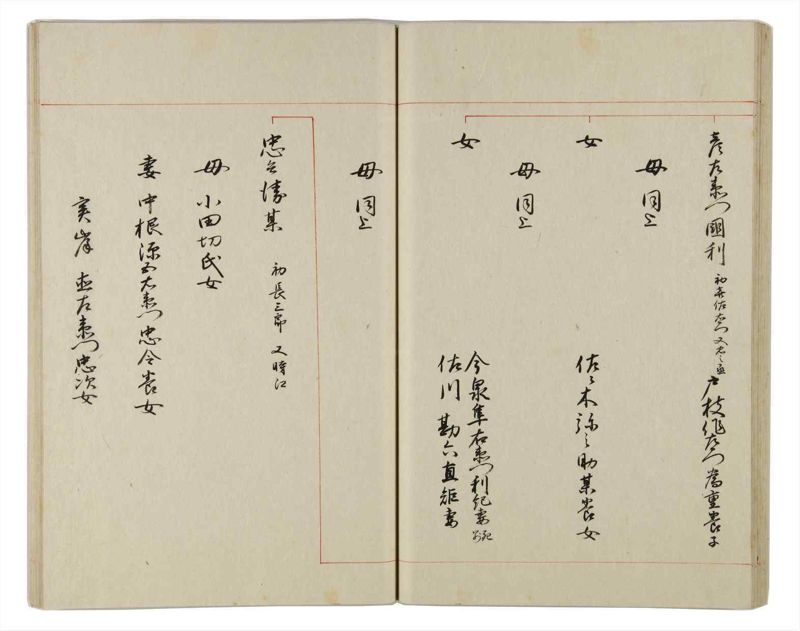 彦左衛門國利 初弁佐左衛門又右之丞 戸枝作左衛門為重養子
母同上
女 佐々木弥之助某養女
母同上
女 今泉隼右衛門利紀妻 離
佐川勘六直矩妻
母同上
忠 某 初長三郎 又
母小田切氏女
妻中根源五右衛門忠令養女
実岸 左衛門忠次女